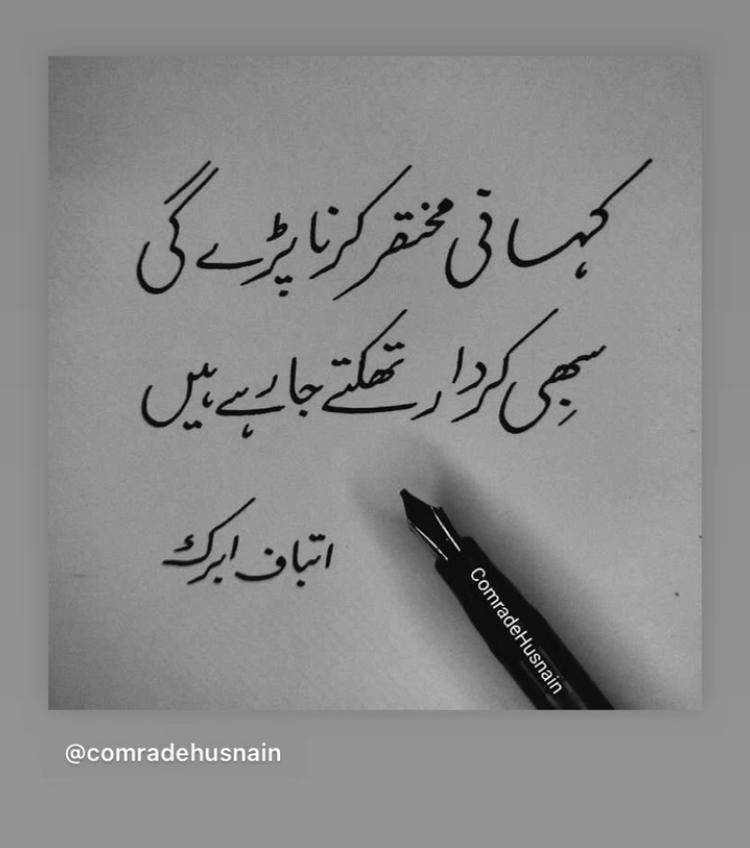 کہانی مختصر کرنا پڑے گی
سبھی کردار تھکتے جا رہے ہیں
اتباف ابرک
ComradeHusnain
@comradehusnain